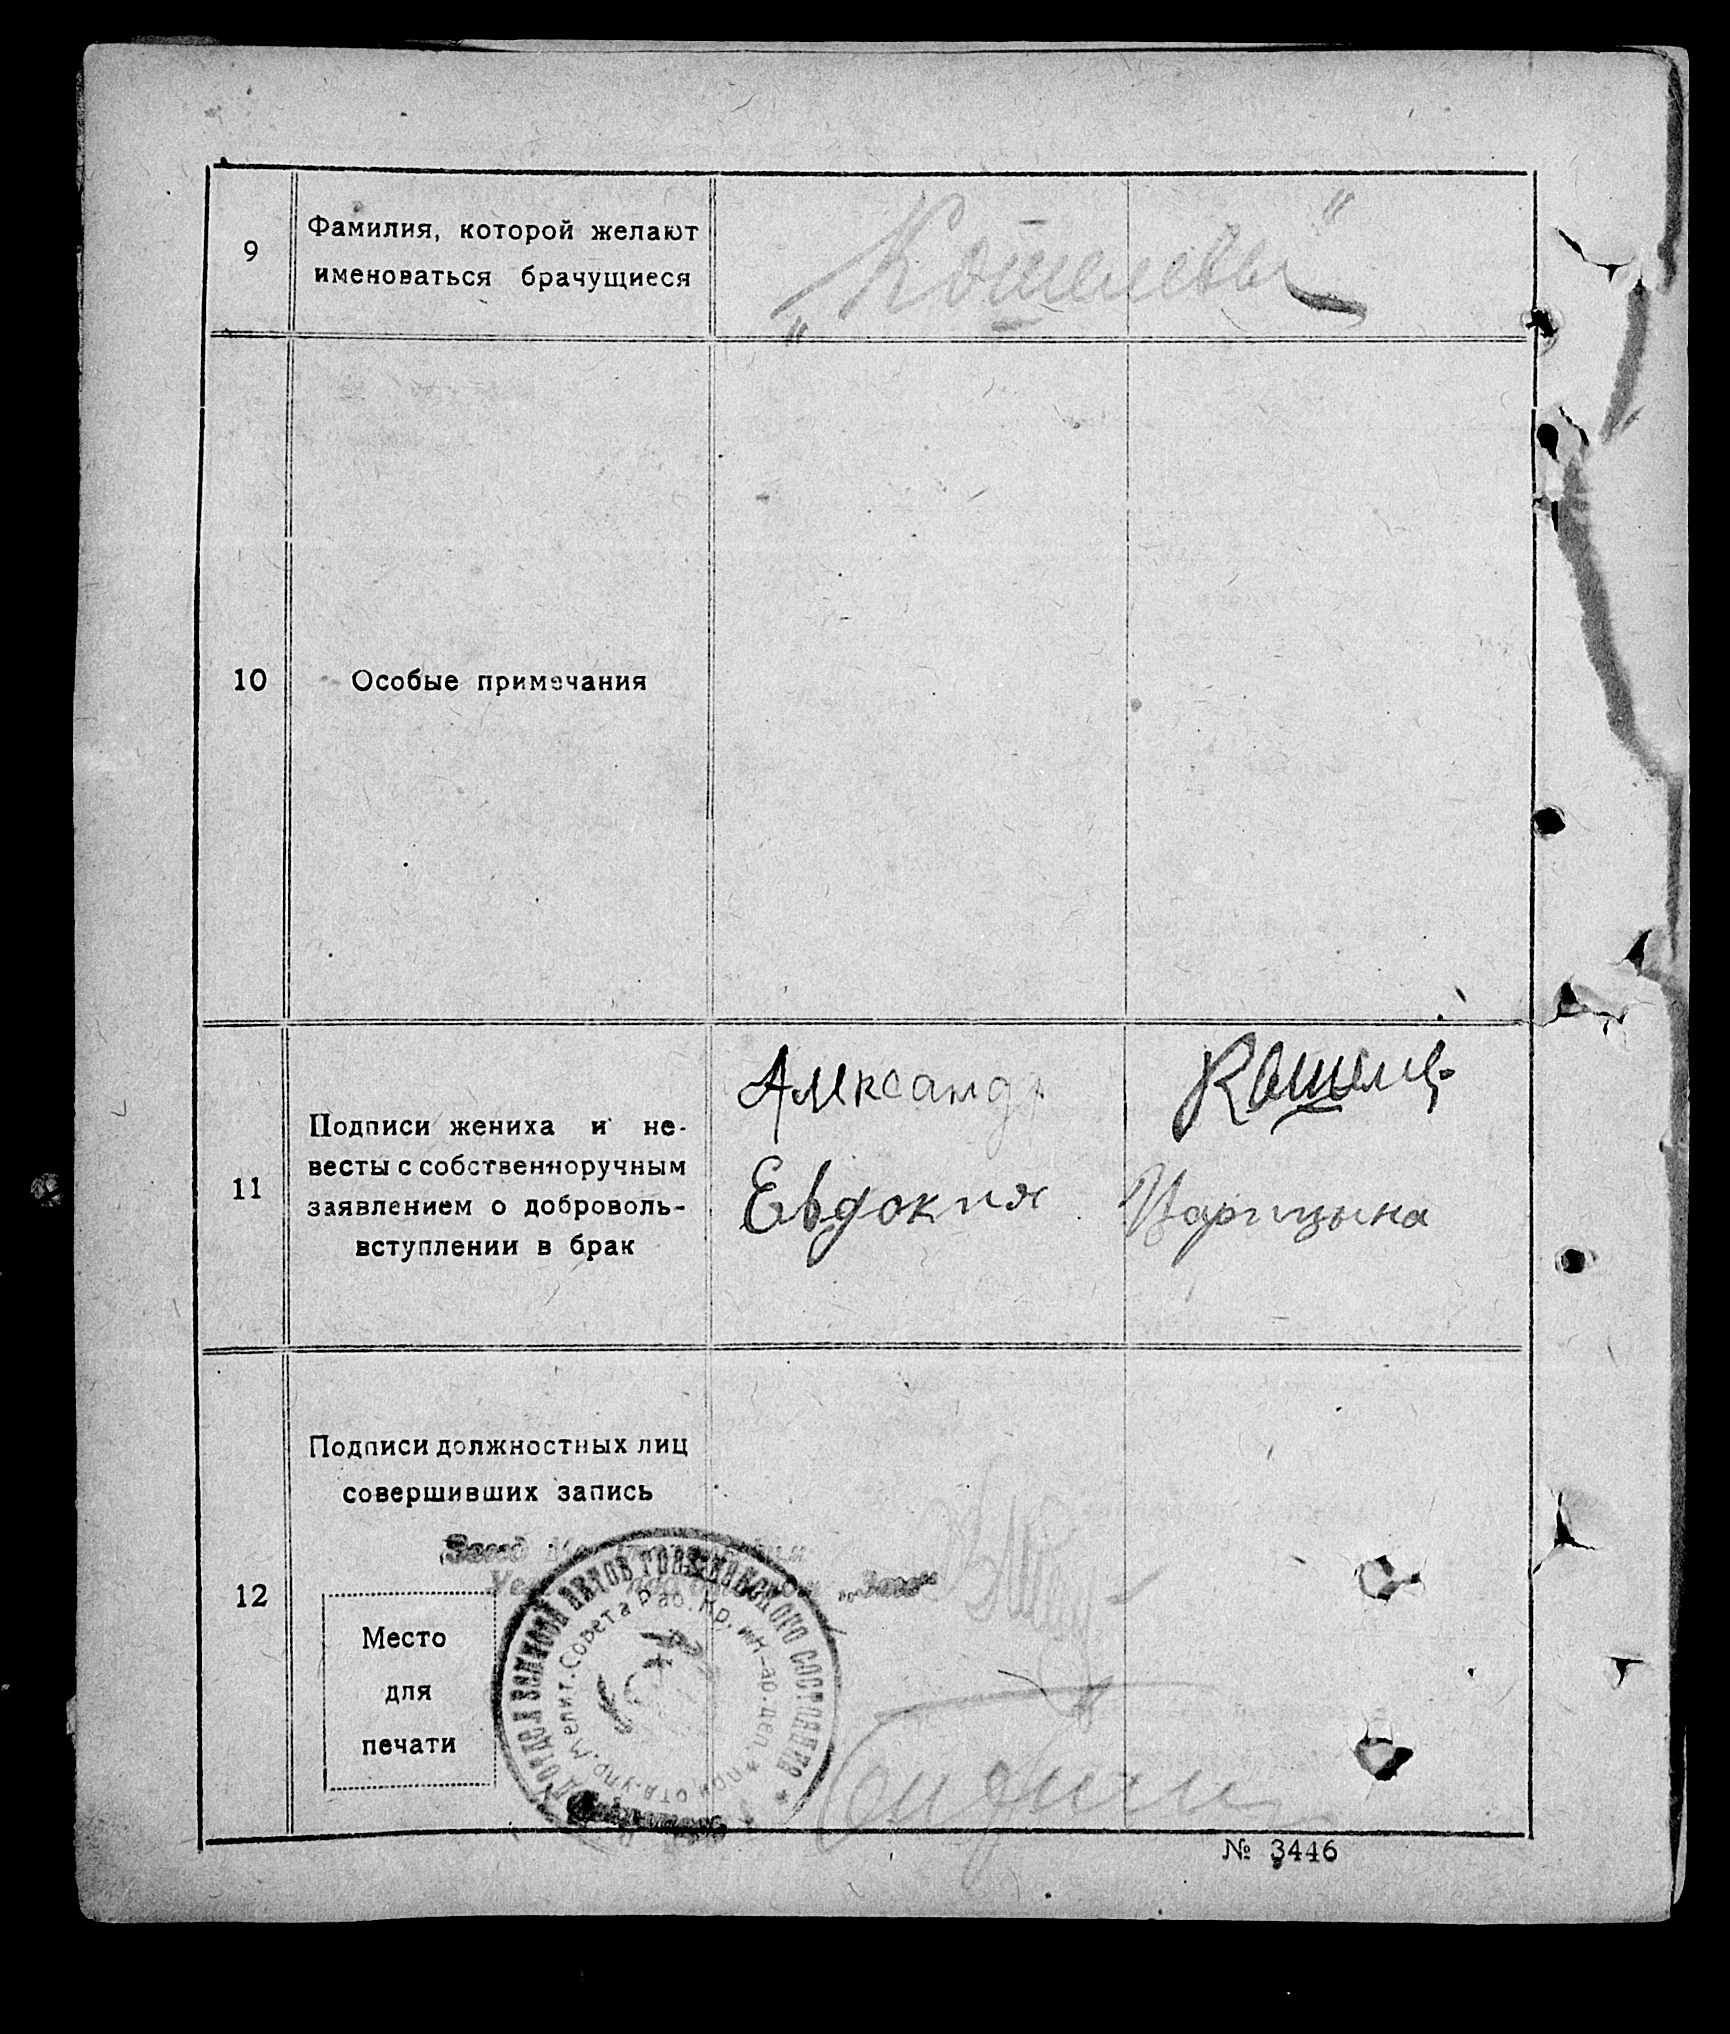 9
Фамилия, которой желают
именоваться брачущиеся
„Кошелевы“
10
Особые примечания
11
Подписи жениха и не-
весты с собственноручным
заявлением о доброволь-
вступлении в брак
Александр Кошелев
Евдокия Царицына
12
Подписи должностных лиц
совершивших запись
Место
для
печати
отдел записей актов гражданского состояния
при отд. упр. Мелит. Совета Раб. Кр. и Кр-ар. деп.
№ 3446